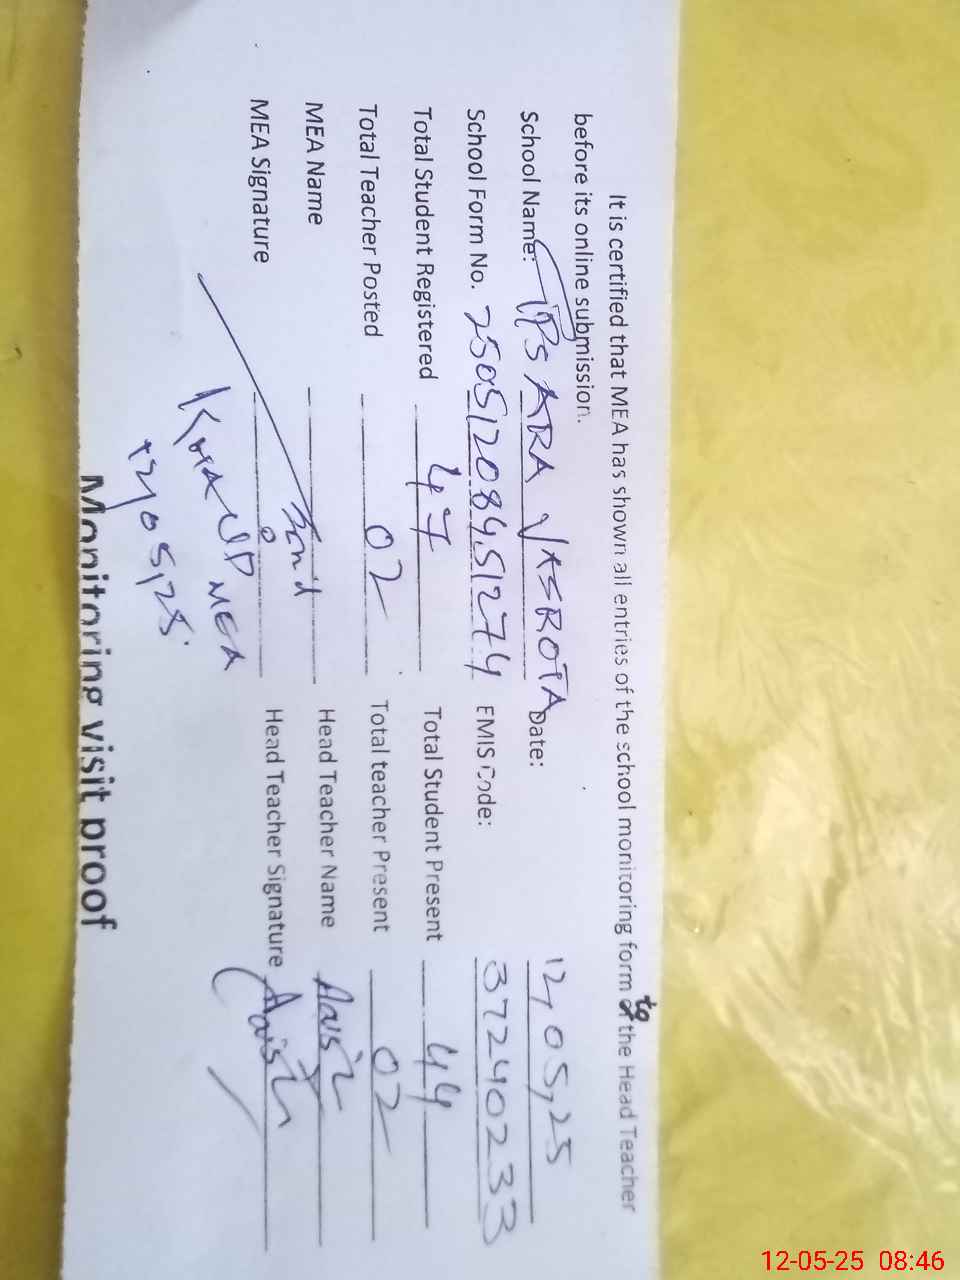 It is certified that MEA has shown all entries of the school monitoring form to the Head Teacher
before its online submission.
School Name: GPS ARA JASROTA Date: 12,05,25
School Form No. 25051208451274 EMIS Code: 37240233
Total Student Registered 47 Total Student Present 44
Total Teacher Posted 02 Total teacher Present 02
MEA Name Head Teacher Name
MEA Signature Head Teacher Signature
MEA
Monitoring visit proof
12-05-25 08:46